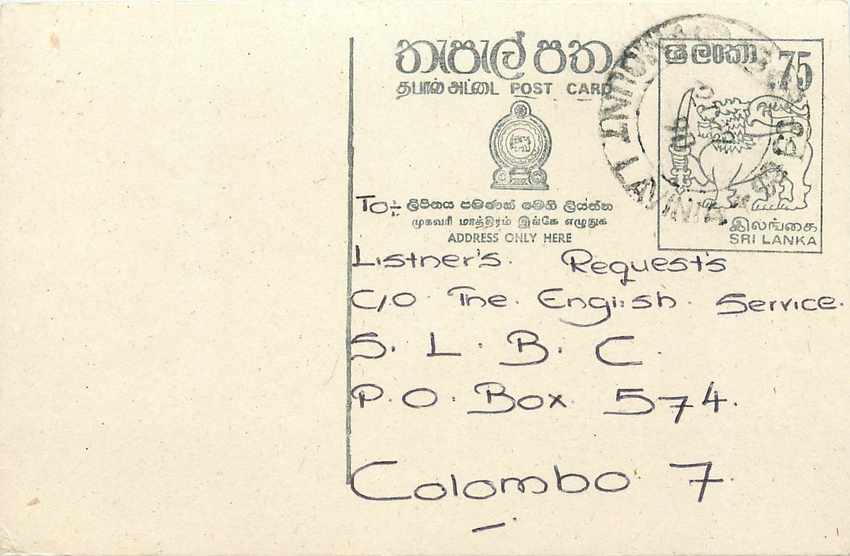 තැපැල් පත
தபால் அட்டை POST CARD
ලිපිනය පමණක් මෙහි ලියන්න
முகவரி மாத்திரம் இங்கே எழுதுக
ADDRESS ONLY HERE
ශ්‍රී ලංකා .75
இலங்கை
SRI LANKA
MOUNT LAVINIA
To:-
Listner's Request's
C/O The English Service.
S. L. B. C.
P.O. Box 574.
Colombo 7